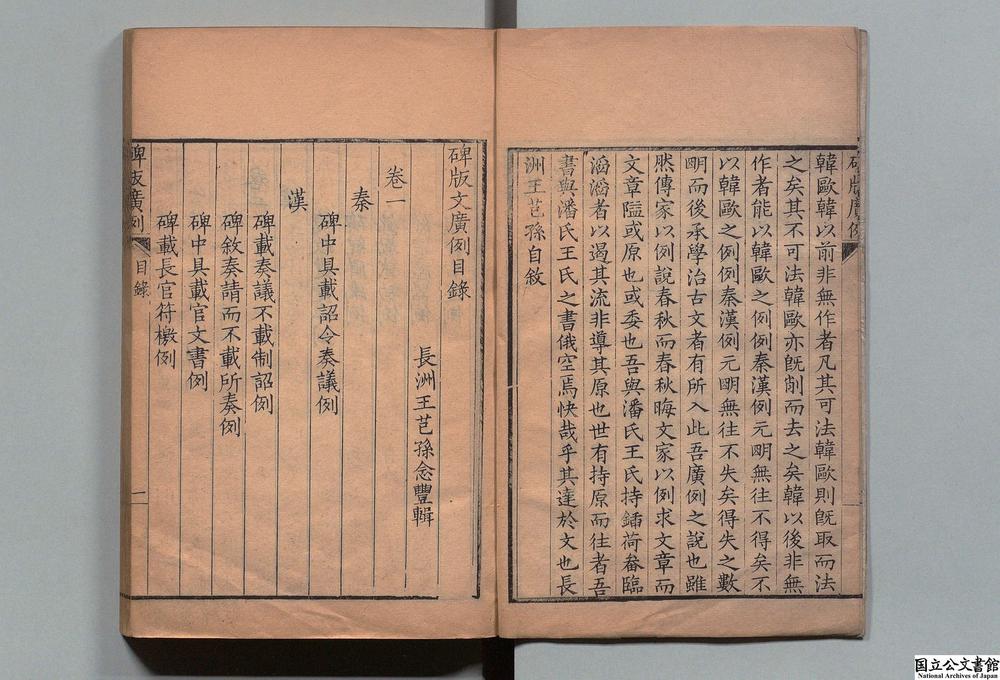 韓歐韓以前非無作者凡其可法韓歐則旣取而法
之矣其不可法韓歐亦旣削而去之矣韓以後非無
作者能以韓歐之例例秦漢例元明無往不得矣不
以韓歐之例例秦漢例元明無往不失矣得失之數
明而後承學治古文者有所入此吾廣例之說也雖
然傳家以例說春秋而春秋晦文家以例求文章而
文章隘或原也或委也吾與潘氏王氏持鍤荷畚臨
滔滔者以遏其流非導其原也世有持原而往者吾
書與潘氏王氏之書俄空焉快哉乎其達於文也長
洲王芑孫自敘
碑版文廣例目錄
長洲王芑孫念豐輯
卷一
秦
碑中具載詔令奏議例
漢
碑載奏議不載制詔例
碑敘奏請而不載所奏例
碑中具載官文書例
碑載長官符檄例
碑版廣例
目錄
一
国立公文書館
National Archives of Japan